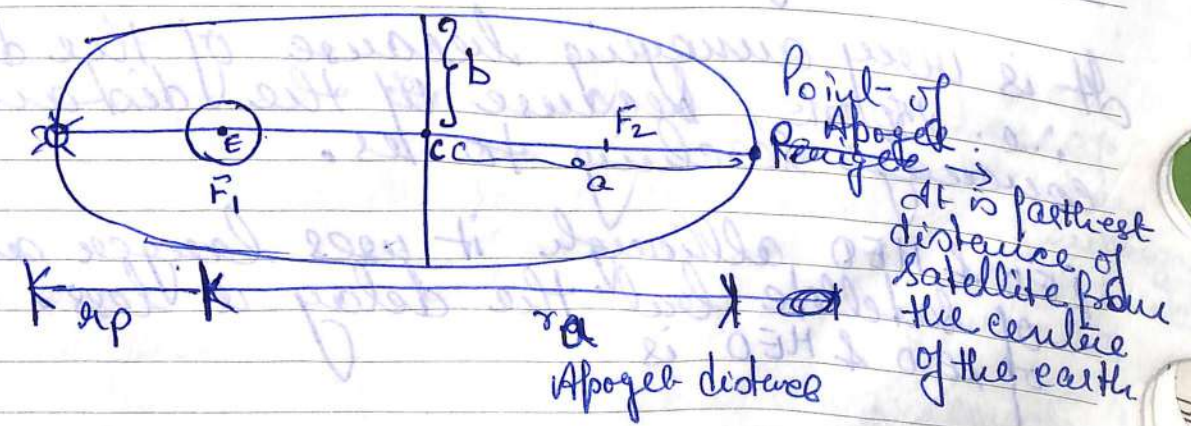 b
Point of
Apogee.
E
F₂
C
a
Perigee →
F₁
It is farthest
distance of
satellite from
the centre
of the earth
rp
ra
Apogee distance